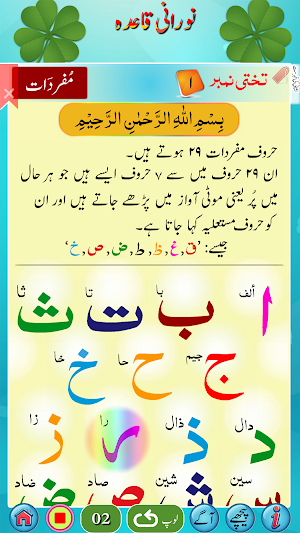 نورانی قاعدہ
تختی نمبر ۱ مُفرَدَات
بِسْمِ اللهِ الرَّحْمٰنِ الرَّحِيْمِ
حروف مفردات ۲۹ ہوتے ہیں۔
ان ۲۹ حروف میں سے ۷ حروف ایسے ہیں جو ہر حال
میں پُر یعنی موٹی آواز میں پڑھے جاتے ہیں اور ان
کو حروف مستعلیہ کہا جاتا ہے۔
جیسے: ’ق, غ, ظ, ط, ض, ص, خ‘
ألف با تا ثا
ا ب ت ث
جیم حا خا
ج ح خ
دال ذال را زا
د ذ ر ز
سین شین صاد ضاد
س ش ص ض
02 لوپ آگے پیچھے